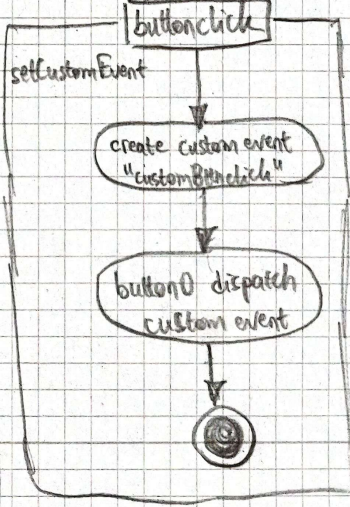 buttonclick
setCustomEvent
create custom event
"customBttnclick"
button0 dispatch
custom event